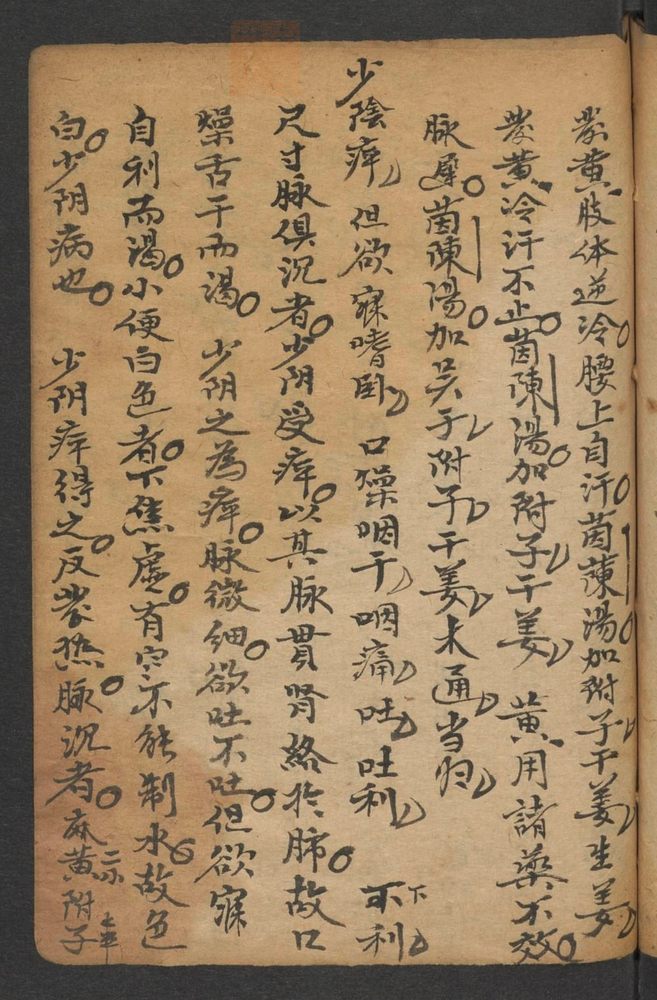 發黄肢体逆冷腰上自汗茵蔯湯加附子干姜生姜
發黄冷汗不止茵陳湯加附子干姜 黄用諸藥不效
脉遲茵陳湯加吴于附子干姜木通当归
少陰痺 但欲寐嗜卧 口燥咽干咽痛吐吐利 下不利
尺寸脉俱沉者少阴受痺以其脉貫腎絡於肺故口
燥舌干而渴 少阴之為痺脉微细欲吐不吐但欲寐
自利而渴小便白色者下焦虚有寒不能制水故色
白少阴病也 少阴痺得之反發热脉沉者麻黄附子